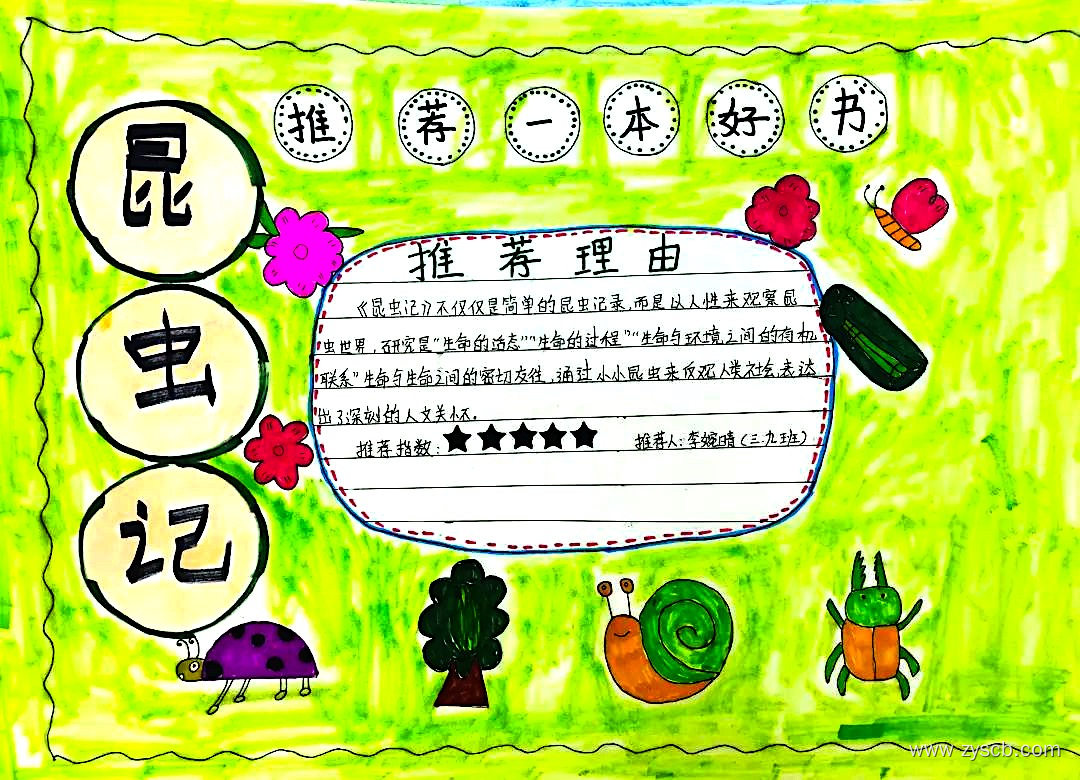 推荐一本好书
昆虫记
推荐理由
《昆虫记》不仅仅是简单的昆虫记录,而是以人性来观察昆
虫世界,研究是"生命的活态""生命的过程""生命与环境之间的有机
联系"生命与生命之间的密切交往,通过小小昆虫来反观人类社会,表达
出了深刻的人文关怀。
推荐指数:★★★★★ 推荐人:李嫁晴(三.九班)
www.zyscb.com